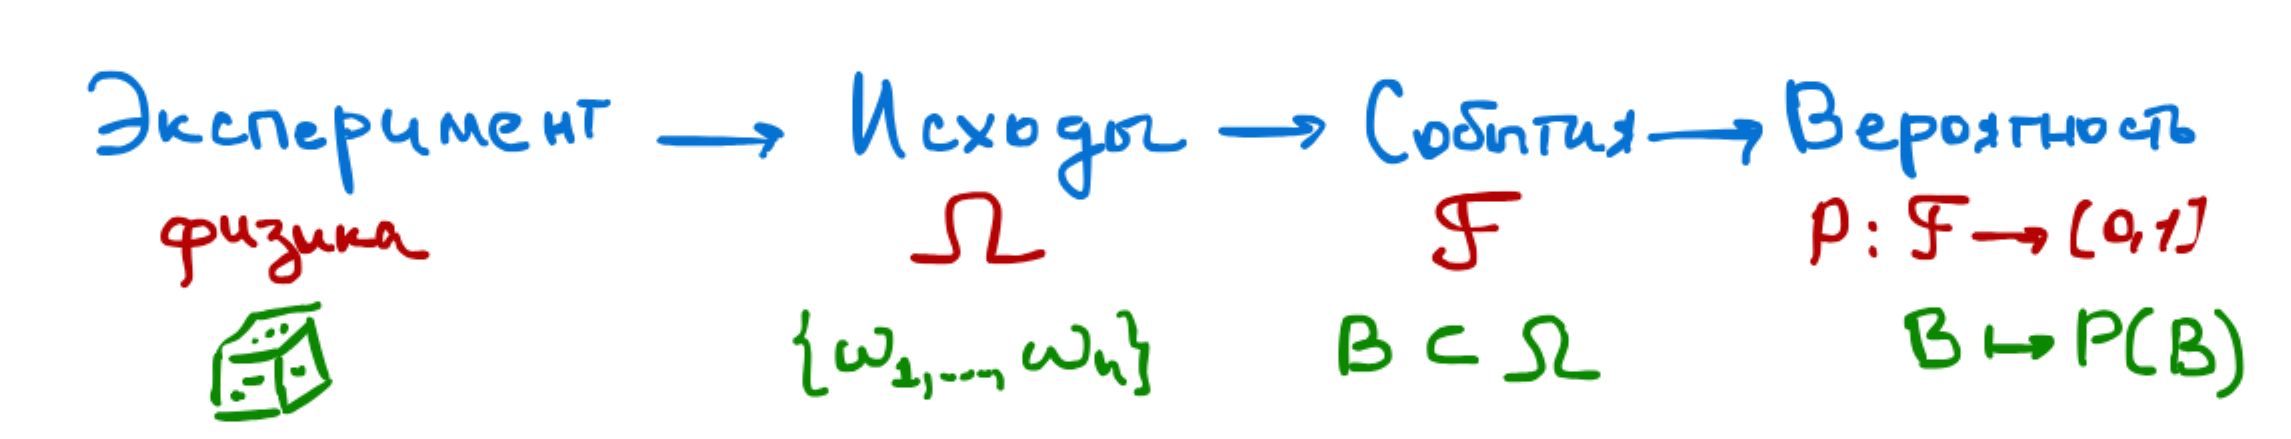 Эксперимент → Исходы → События → Вероятность
физика Ω ℱ P: ℱ → [0,1]
{ω₁,...,ωₙ} B ⊂ Ω B ↦ P(B)